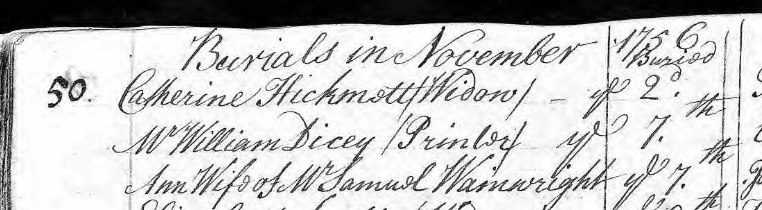 Burials in November 1756
Buried
50. Catherine Hickmott (Widow) - ye 2d.
Mr William Dicey (Printer) ye 7.th
Ann Wife of Mr Samuel Wainwright ye 7.th